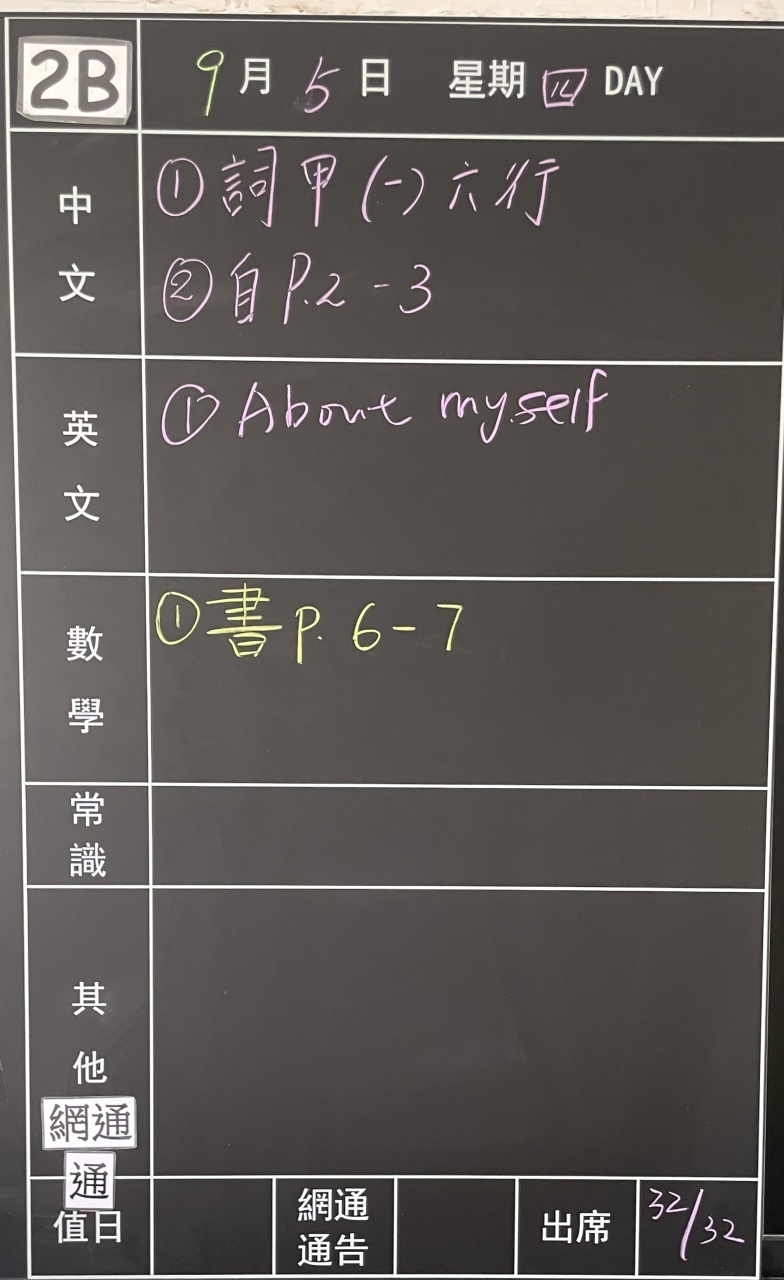 2B 9月5日 星期四 DAY
中文
①詞甲(一)六行
②自P.2-3
英文
①About myself
數學
①書P.6-7
常識
其他
網通
通
值日 網通通告 出席 32/32